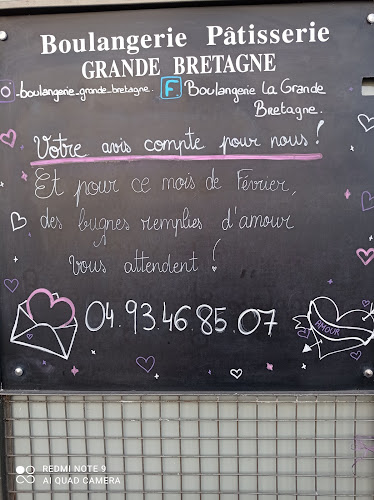 Boulangerie Pâtisserie
GRANDE BRETAGNE
_boulangerie_grande_bretagne. F Boulangerie La Grande
Bretagne.
Votre avis compte pour nous !
Et pour ce mois de Février,
des bugnes remplies d'amour
vous attendent !
04.93.46.85.07
AMOUR
REDMI NOTE 9
AI QUAD CAMERA